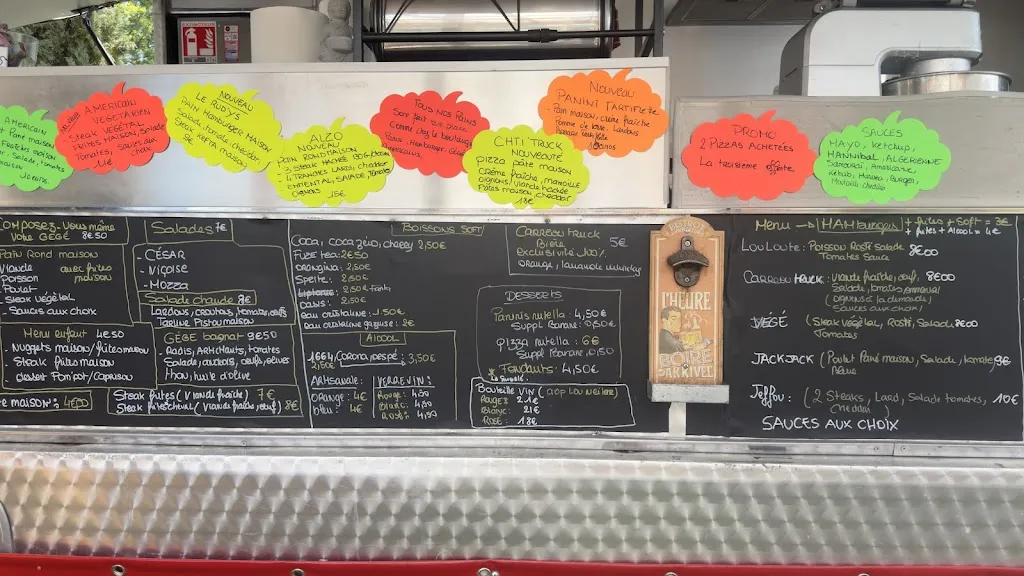 AMERICAIN
Pané maison
FRITES MAISON
Salade
AMERICAIN
VEGETARIEN
Steak VEGETAL
FRITES MAISON, Salade
Tomates, sauces aux
choix
NOUVEAU
LE RUDY'S
PAIN HAMBURGER MAISON
Salade, tomate, cheddar
MAISON
ALZO
NOUVEAU
PAIN ROND MAISON
3 STEAK HACHÉE
TRANCHES LARD, cheddar
EMMENTAL, SALADE, Tomates
OIGNONS 15€
Tous nos Pains
Sont fait sur place
Comme chez le boulanger
Pains, Hamburger
CHTI TRUCK
NOUVEAUTÉ
pizza pâte maison
crème fraîche, maroille
oignons, viande hachée
Pâtes maison, cheddar
13€
NOUVEAU
PANINI TARTIFLETTE
Pain maison, crème fraîche
Pomme de terre, Lardons
PROMO
2 PIZZAS ACHETÉES
La troisieme offerte
SAUCES
MAYO, KETCHUP,
HANNIBAL, ALGERIENNE
Samourai, Americaine
Kebab, Burger,
Moutarde
COMPOSEZ Vous même
Votre GÉGÉ 8€50
Pain Rond maison
Viande avec frites
Poisson maison
Poulet
- Steak végétal
- Sauces aux choix
Salades 7€
- CÉSAR
- Niçoise
- MOZZA
Salade chaude 9€
Lardons, croutons, tomates, œufs
Tartine Pistou maison
Menu enfant 4€50
- Nuggets maison/frites maison
- Steak frites maison
dessert Pom'pot/Caprisun
GÉGÉ bagnat 9€50
- Radis, Artichauts, tomates
Salade, anchois, œufs, olives
thon, huile d'olive
maison: 4€00
Steak frites (Viande fraîche) 7€
Steak frites cheval (Viande fraîche, œuf) 8€
BOISSONS SOFT
Coca, coca zéro, cherry 2,50€
Fuze tea: 2€50
ORANGINA: 2,50€
Sprite: 2,50€
2,50€ Fanta
Oasis: 2,50€
Eau cristaline: 1,50€
Eau cristaline gazeuse: 2€
ALCOOL
1664/Corona/Despé: 3,50€
2,50€
ARTISANALE:
ORANGE: 4€
Bleu: 4€
VERRE VIN:
Rouge: 4,50
Blanc: 4,50
Rosé: 4,50
CARREOU TRUCK 5€
Bière
exclusivité 100%
orange, lavande
DESSERTS
Paninis nutella: 4,50€
Suppl Banane: 0,50€
pizza nutella: 6€
Suppl Banane: 0,50
Fondants: 4,50€
Bouteille VIN
ROUGE: 21€
BLANC: 21€
ROSÉ: 18€
L'HEURE
DE
BOIRE
EST ARRIVÉE
Menu → HAMburgers + frites + Soft = 3€
+ frites + Alcool = 4€
LOULOUTE: Poisson Rosti Salade 9€00
Tomates Sauce
CARREOU TRUCK: Viande fraîche, œuf, 8€00
Salade, tomates, emmental
(oignons à la demande)
(sauces aux choix)
VÉGÉ (Steak végétal, Rosti, Salade 8€00
Tomates
JACKJACK (Poulet Pané maison, Salade, tomates 9€
Jeffou: (2 Steaks, Lard, Salade tomates, 10€
cheddar)
SAUCES AUX CHOIX